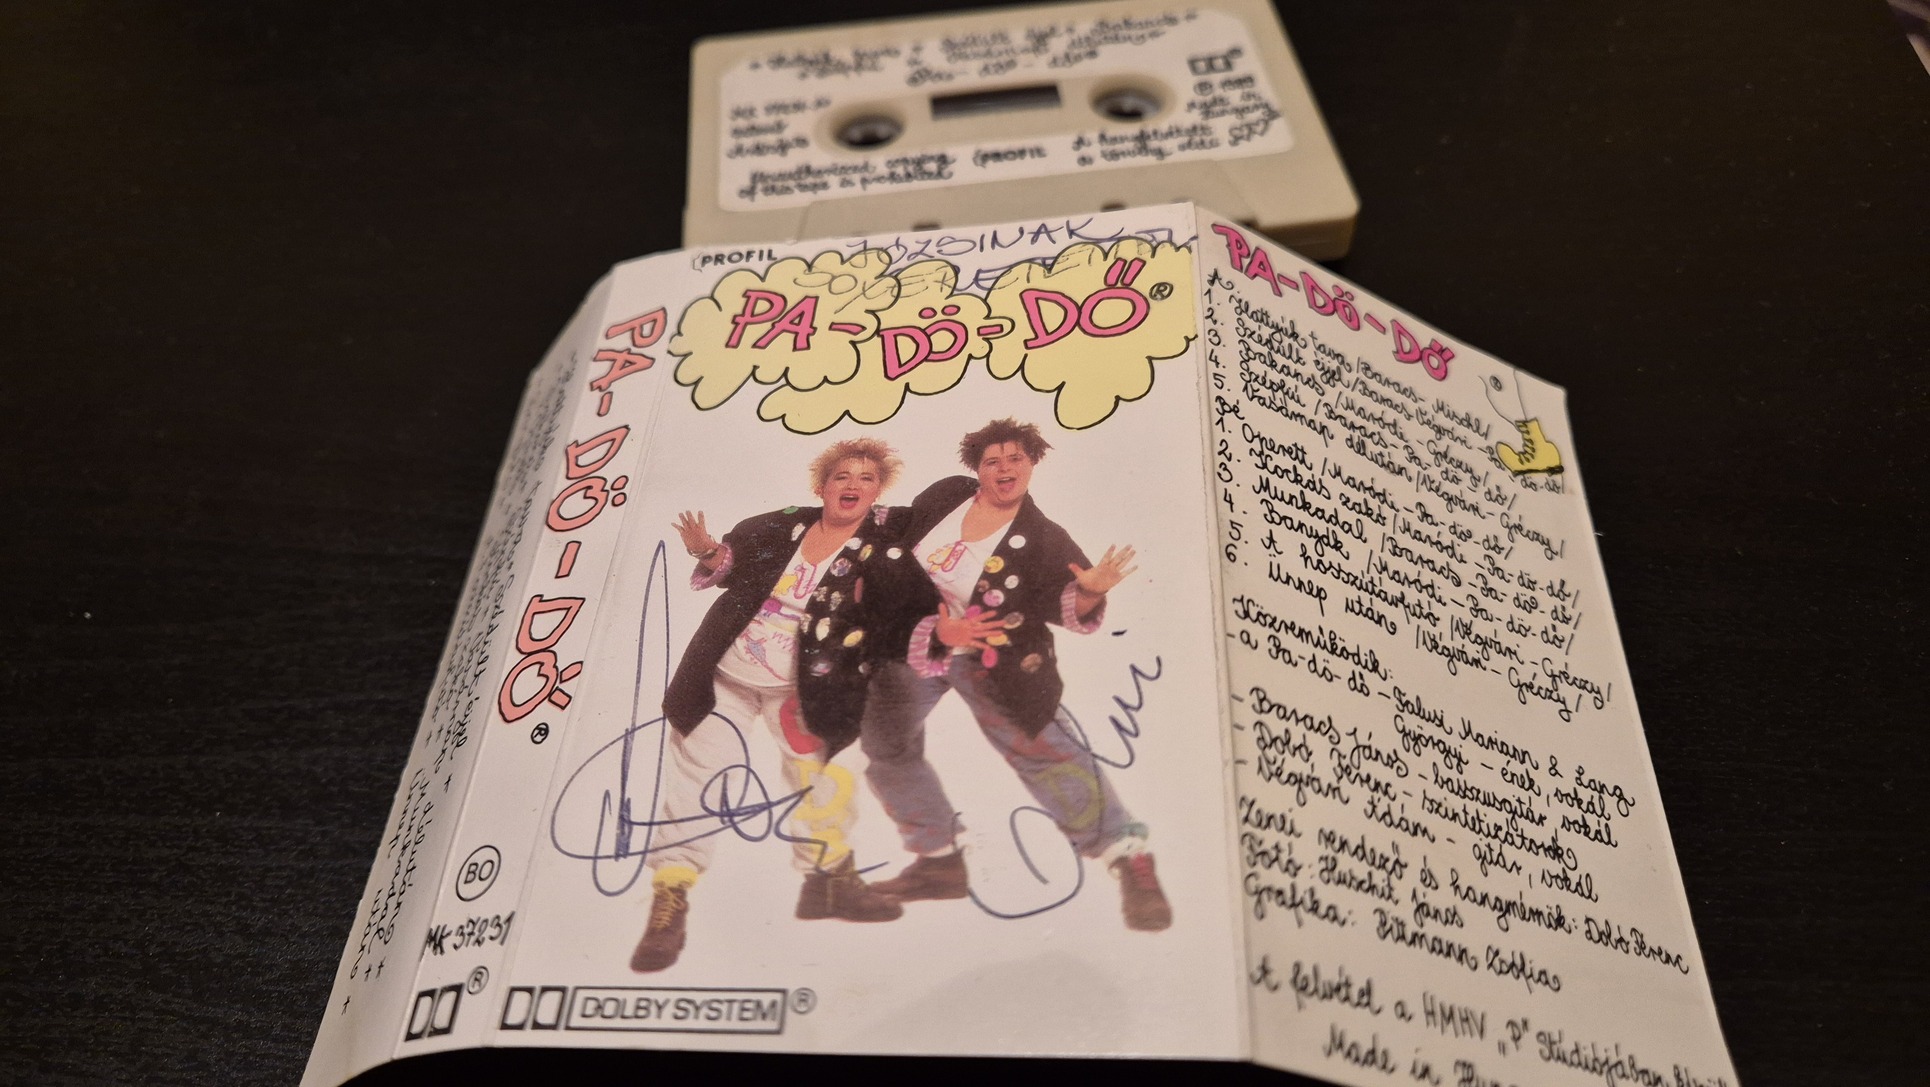 Pa-dö-dő
® 1989
Made in
Hungary
Unauthorized copying
of this tape is prohibited
PROFIL
A hangfelvételt
a törvény védi
PROFIL
JÓZSINAK
SZERETETTEL
PA-DÖ-DŐ®
PA-DÖ-DŐ®
BO
MK 37231
®
DOLBY SYSTEM®
PA-DÖ-DŐ
®
A
1. Hattyúk tava /Baracs-Mischl/
2. Szédült éjjel /Baracs-Végvári-Pa-dö-dő/
3. Bakancs /Maródi-Gréczy/
4. Szépfiú /Baracs-Pa-dö-dő/
5. Vasárnap délután /Végvári-Gréczy/
Bé
1. Operett /Maródi-Pa-dö-dő/
2. Kockás zakó /Maródi-Pa-dö-dő/
3. Munkadal /Baracs-Pa-dö-dő/
4. Banyák /Maródi-Pa-dö-dő/
5. A hosszútávfutó /Végvári-Gréczy/
6. Ünnep után /Végvári-Gréczy/
Közreműködik:
- a Pa-dö-dő - Falusi Mariann & Lang
Györgyi - ének, vokál
- Baracs János - basszusgitár, vokál
- Dobó Ferenc - szintetizátorok
- Végvári Ádám - gitár, vokál
Zenei rendező és hangmérnök: Dobó Ferenc
Fotó: Huschit János
Grafika: Pittmann Zsófia
A felvétel a HMHV „P" Stúdiójában
Made in